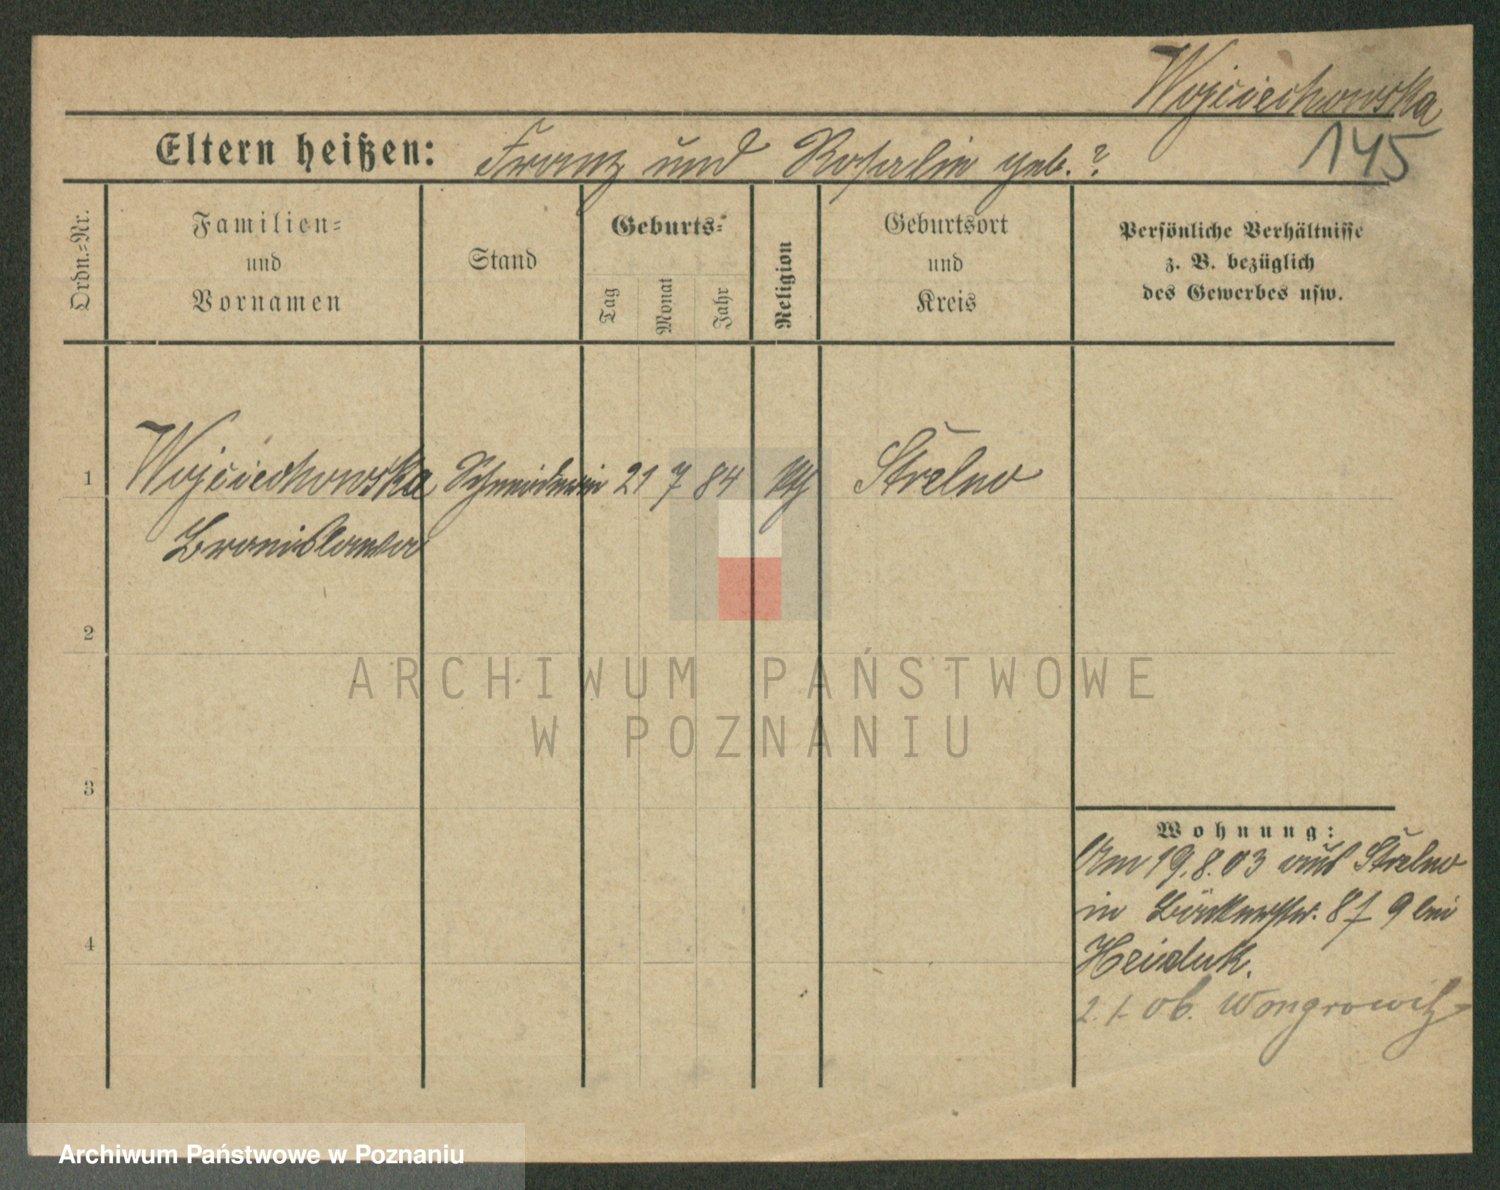 Wojciechowska
145
Eltern heißen: Franz und Rosalie geb. ?
Ordn.=Nr.
Familien=
und
Vornamen
Stand
Geburts=
Tag
Monat
Jahr
Religion
Geburtsort
und
Kreis
Persönliche Verhältnisse
z. B. bezüglich
des Gewerbes usw.
1 Wojciechowska Schneiderin 21 7 84 Strelno
Bronislawa
2
3
4
Wohnung:
Am 19.8.03 aus Strelno
in Bäckerstr. 8 9 bei
Heiduk.
2. 1. 06. Wongrowitz
ARCHIWUM PAŃSTWOWE
W POZNANIU
Archiwum Państwowe w Poznaniu